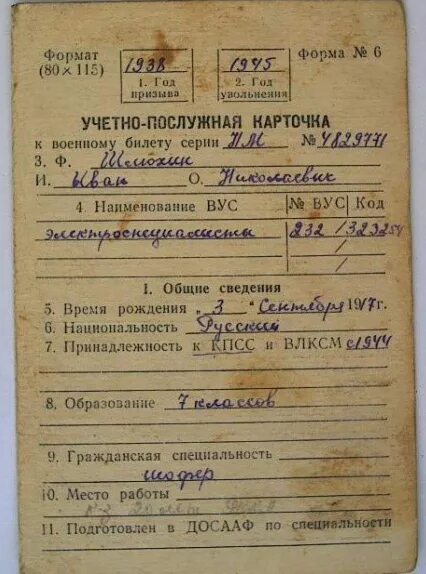 Формат
(80×115)
1938
1. Год
призыва
1945
2. Год
увольнения
Форма № 6
УЧЕТНО-ПОСЛУЖНАЯ КАРТОЧКА
к военному билету серии НМ № 4829771
3. Ф. Шлюхин
И. Ыван О. Николаевич
4. Наименование ВУС № ВУС Код
электроспециалисты 232 /
/
/
I. Общие сведения
5. Время рождения „3" Сентября 1917г.
6. Национальность Русский
7. Принадлежность к КПСС и ВЛКСМ с 1944
8. Образование 7 классов
9. Гражданская специальность
шофер
10. Место работы
11. Подготовлен в ДОСААФ по специальности